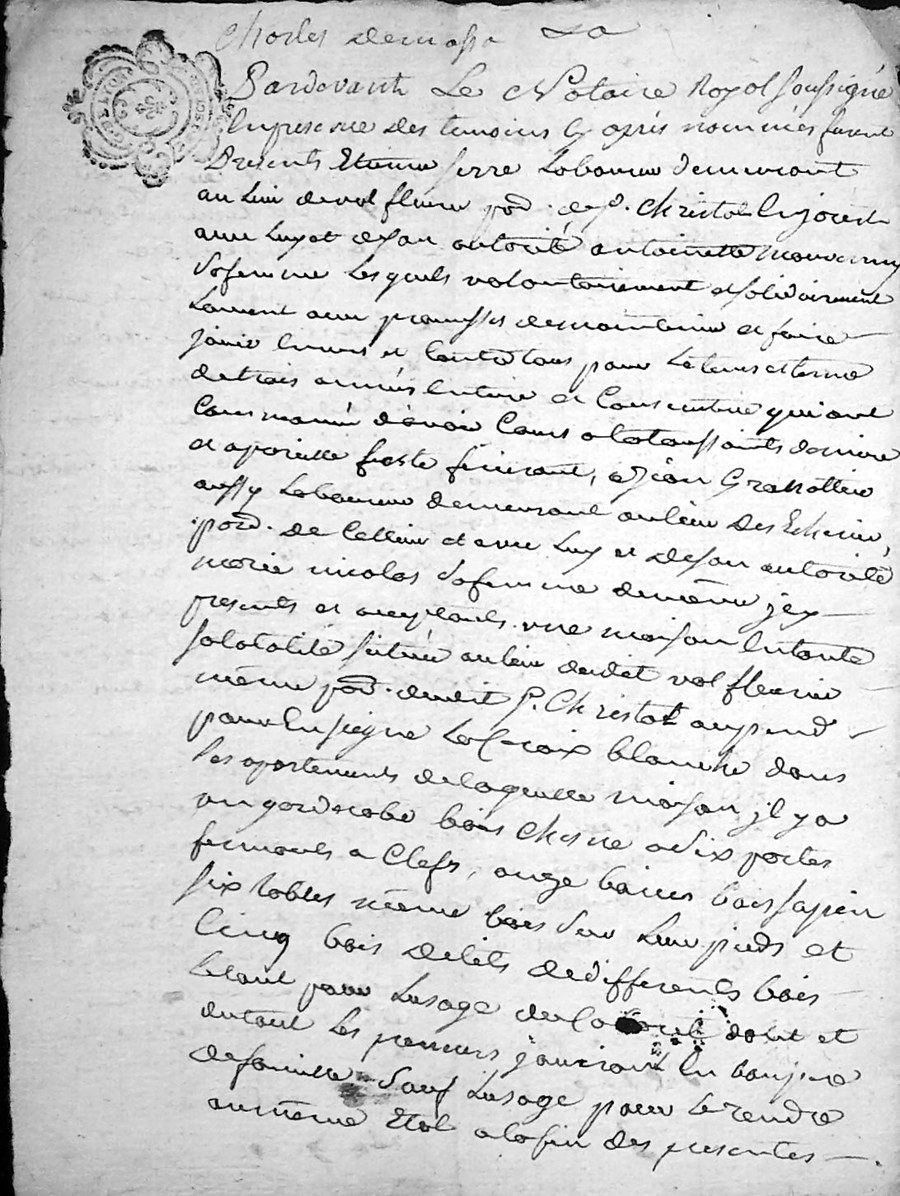 Pardevant Le Notaire Royal soussigné
En presence des temoins cy après nommés furent
Presents Etienne serre Laboureur demeurant
au lieu de val fleurie parr. de st. Christot En jarest
avec luy et de son autorité antoinette
sa femme Lesquels volontairement et solidairement
Louent avec promesses de maintenir et faire
jouir Envers et Contre tous pour Le tems et terme
de trois années Entiere et Consecutive qui ont
Commancé d'avoir Cours a la toussaints derniere
et a pareille feste finiront, a jean Grataloup
aussy Laboureur demeurant au lieu Des
parr. de Cellieu et avec Luy et De son autorité
marie nicolas sa femme demême jcy
presents et acceptants une maison En toute
sa totalité scituée au lieu dudit val fleurie
même parr. dudit st. Christot ayant
pour Enseigne La Croix blanche dans
les apartements de laquelle maison jl y a
un garderobe bois Chesne a six portes
fermants a Clefs, onze bancs bois sapin
six tables même bois sur Leur pieds et
Cinq bois de lits de differents bois
Etant pour Lusage de la dont et
du tout Les preneurs jouiront En bon pere
de famille sauf Lusage pour Le rendre
au même Etat a la fin des presentes